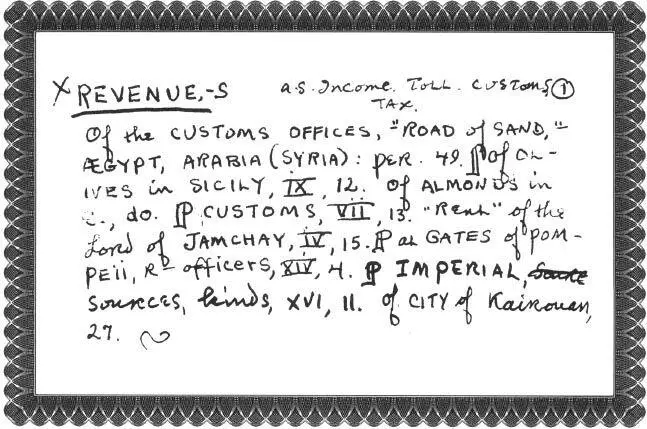 X REVENUE,-S as. Income. Toll. Customs ①
TAX.
Of the CUSTOMS OFFICES, "ROAD of SAND,"
ÆGYPT, ARABIA (SYRIA): per. 49. ¶ of OL-
IVES in SICILY, IX, 12. Of ALMONDS in
do. ¶ CUSTOMS, VII, 13. "Rent" of the
Lord of JAMCHAY, IV, 15. ¶ at GATES of POM-
Peii, Rd officers, XIV, 4. ¶ IMPERIAL,
Sources, kinds, XVI, 11. of CITY of Kairouan,
27.